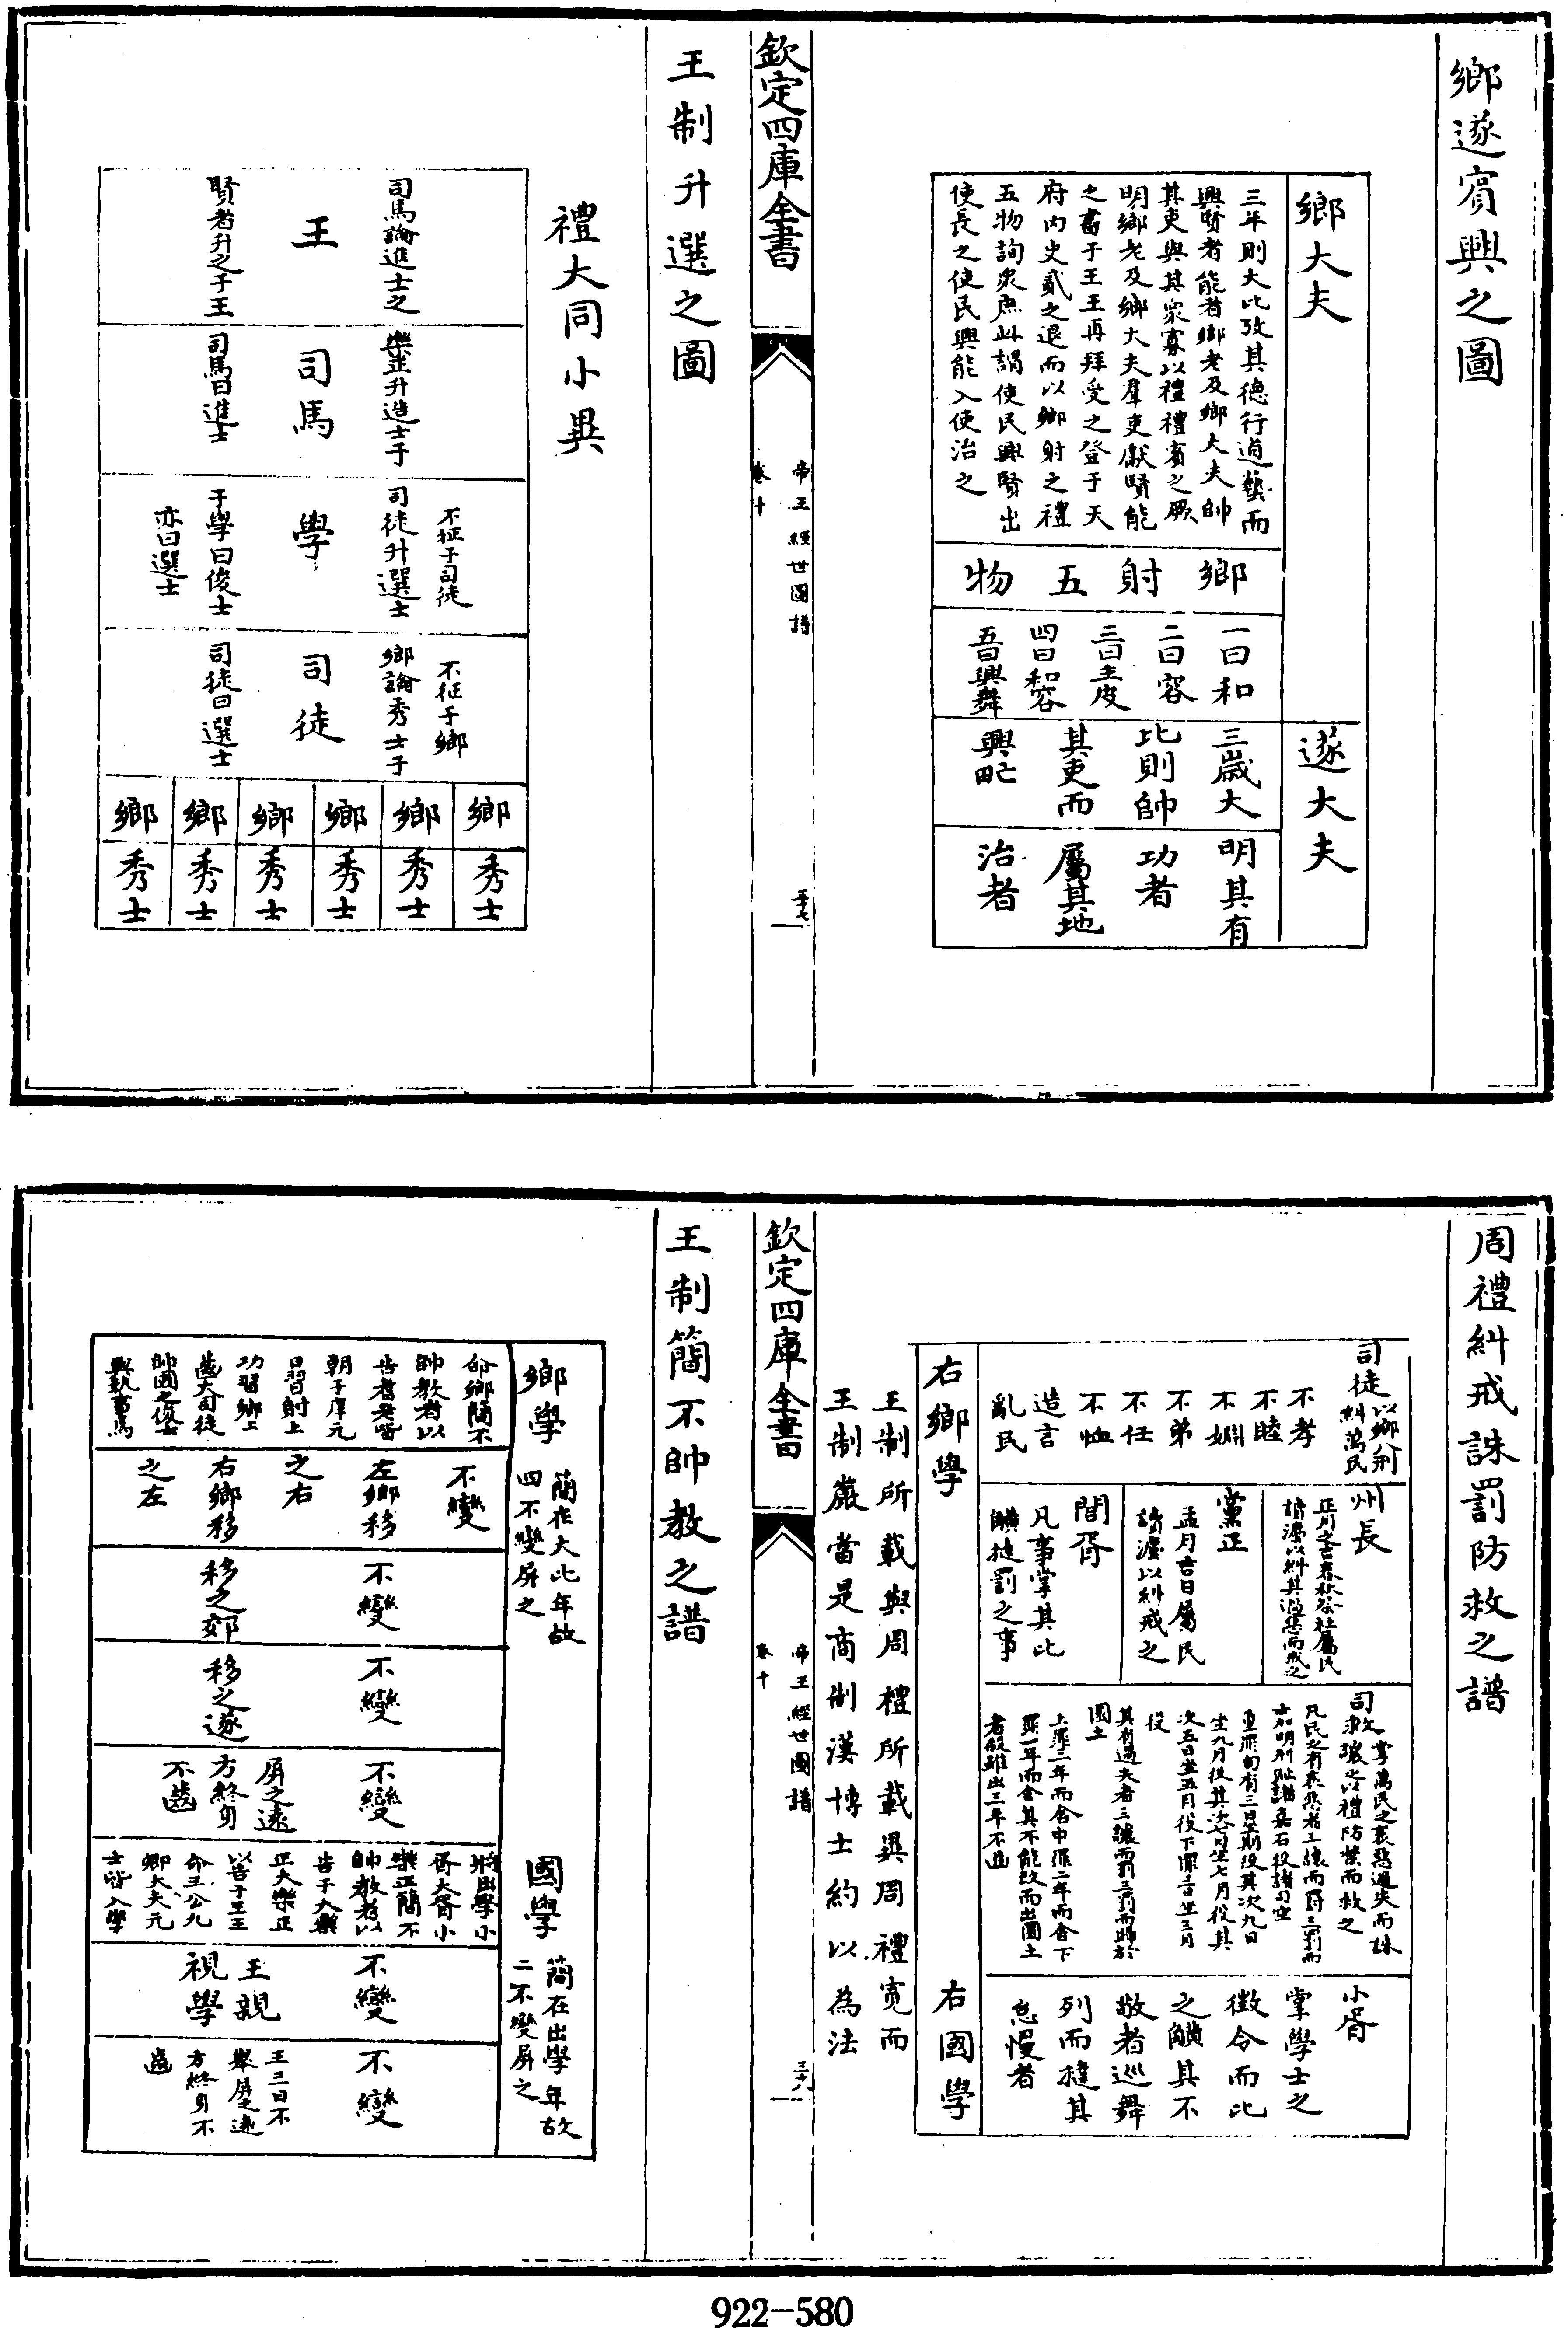 鄉遂賓興之圖
鄉大夫
三年則大比攷其德行道藝而
興賢者能者鄉老及鄉大夫帥
其吏與其衆寡以禮禮賓之厥
明鄉老及鄉大夫羣吏獻賢能
之書于王王再拜受之登于天
府内史貳之退而以鄉射之禮
五物詢衆庶此謂使民興賢出
使長之使民興能入使治之
鄉射五物
一曰和
二曰容
三曰主皮
四曰和容
五曰興舞
遂大夫
三歲大
比則帥
其吏而
興甿
明其有
功者
屬其地
治者
欽定四庫全書
帝王經世圖譜
卷十
三十七
王制升選之圖
禮大同小異
司馬論進士之
王
賢者升之于王
樂正升造士于
司馬
司馬曰進士
不征于司徒
司徒升選士
學
于學曰俊士
亦曰選士
不征于鄉
鄉論秀士于
司徒
司徒曰選士
鄉 鄉 鄉 鄉 鄉 鄉
秀士 秀士 秀士 秀士 秀士 秀士
周禮糾戒誅罰防救之譜
司徒以鄉八刑
糾萬民
不孝
不睦
不婣
不弟
不任
不恤
造言
亂民
州長
正月之吉春秋祭社屬民
讀灋以糾其過惡而戒之
黨正
孟月吉日屬民
讀灋以糾戒之
閭胥
凡事掌其比
觵撻罰之事
司救掌萬民之衺惡過失而誅
讓之以禮防禁而救之
凡民之有衺惡者三讓而罰三罰而
士加明刑耻諸嘉石役諸司空
重罪旬有三日坐期役其次九日
坐九月役其次七日坐七月役其
次五日坐五月役下罪三日坐三月
役
其有過失者三讓而罰三罰而歸於
圜土
上罪三年而舍中罪二年而舍下
罪一年而舍其不能改而出圜土
者殺雖出三年不齒
小胥
掌學士之
徵令而比
之觵其不
敬者巡舞
列而撻其
怠慢者
右鄉學
右國學
王制所載與周禮所載異周禮寛而
王制嚴當是商制漢博士約以為法
欽定四庫全書
帝王經世圖譜
卷十
三十八
王制簡不帥教之譜
鄉學
簡在大比年故
四不變屏之
命鄉簡不
帥教者以
告耆老皆
朝于庠元
日習射上
功習鄉上
齒大司徒
帥國之俊士
與執事焉
不變
左鄉移
之右
右鄉移
之左
不變
移之郊
不變
移之遂
不變
屏之遠
方終身
不齒
國學
簡在出學年故
二不變屏之
將出學小
胥大胥小
樂正簡不
帥教者以
告于大樂
正大樂正
以告于王王
命三公九
卿大夫元
士皆入學
不變
王親
視學
不變
王三日不
舉屏之遠
方終身不
齒
922-580